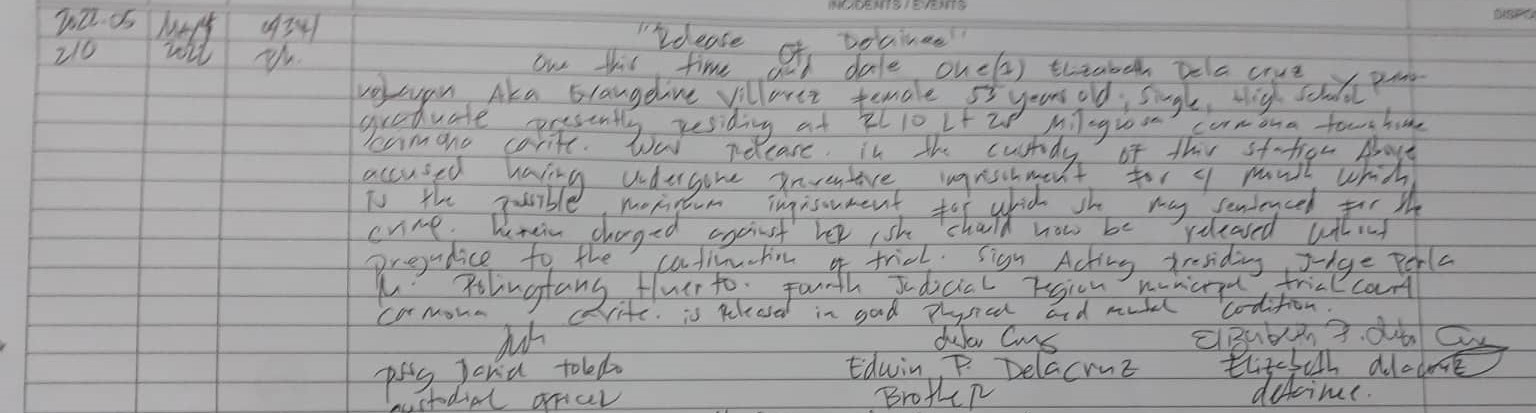 INCIDENTS / EVENTS
2022-05 0434H "Release of Detainee"
210 2022 One this time and date one(1) Elizabeth Dela cruz y
AKA Evangeline Villarez female 53 years old, Single, High School
graduate presently residing at Lt 28 Milagrosa carmona townhome
carmona cavite. Was release. in the custody of this station Above
accused having undergone preventive for 4 month which
is the possible maximum for which she may sentenced for the
crime. herein charged against her, she should now be released without
prejudice to the continuation of trial. Sign Acting Presiding Judge Perla
Huerto. Fourth Judicial Region municipal trial court
carmona cavite. is released in good physical and mental condition.
dela Cruz
David toledo Edwin P. Delacruz Elizabeth delacruz
custodial officer Brother detainee.